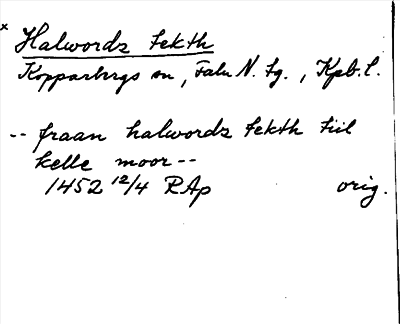 x Halwordz tekth
Kopparbergs sn, Falu N. tg., Kpb. l.
-- fraan halwordz tekth tiil
kelle moor --
1452 12/4 RAp orig.